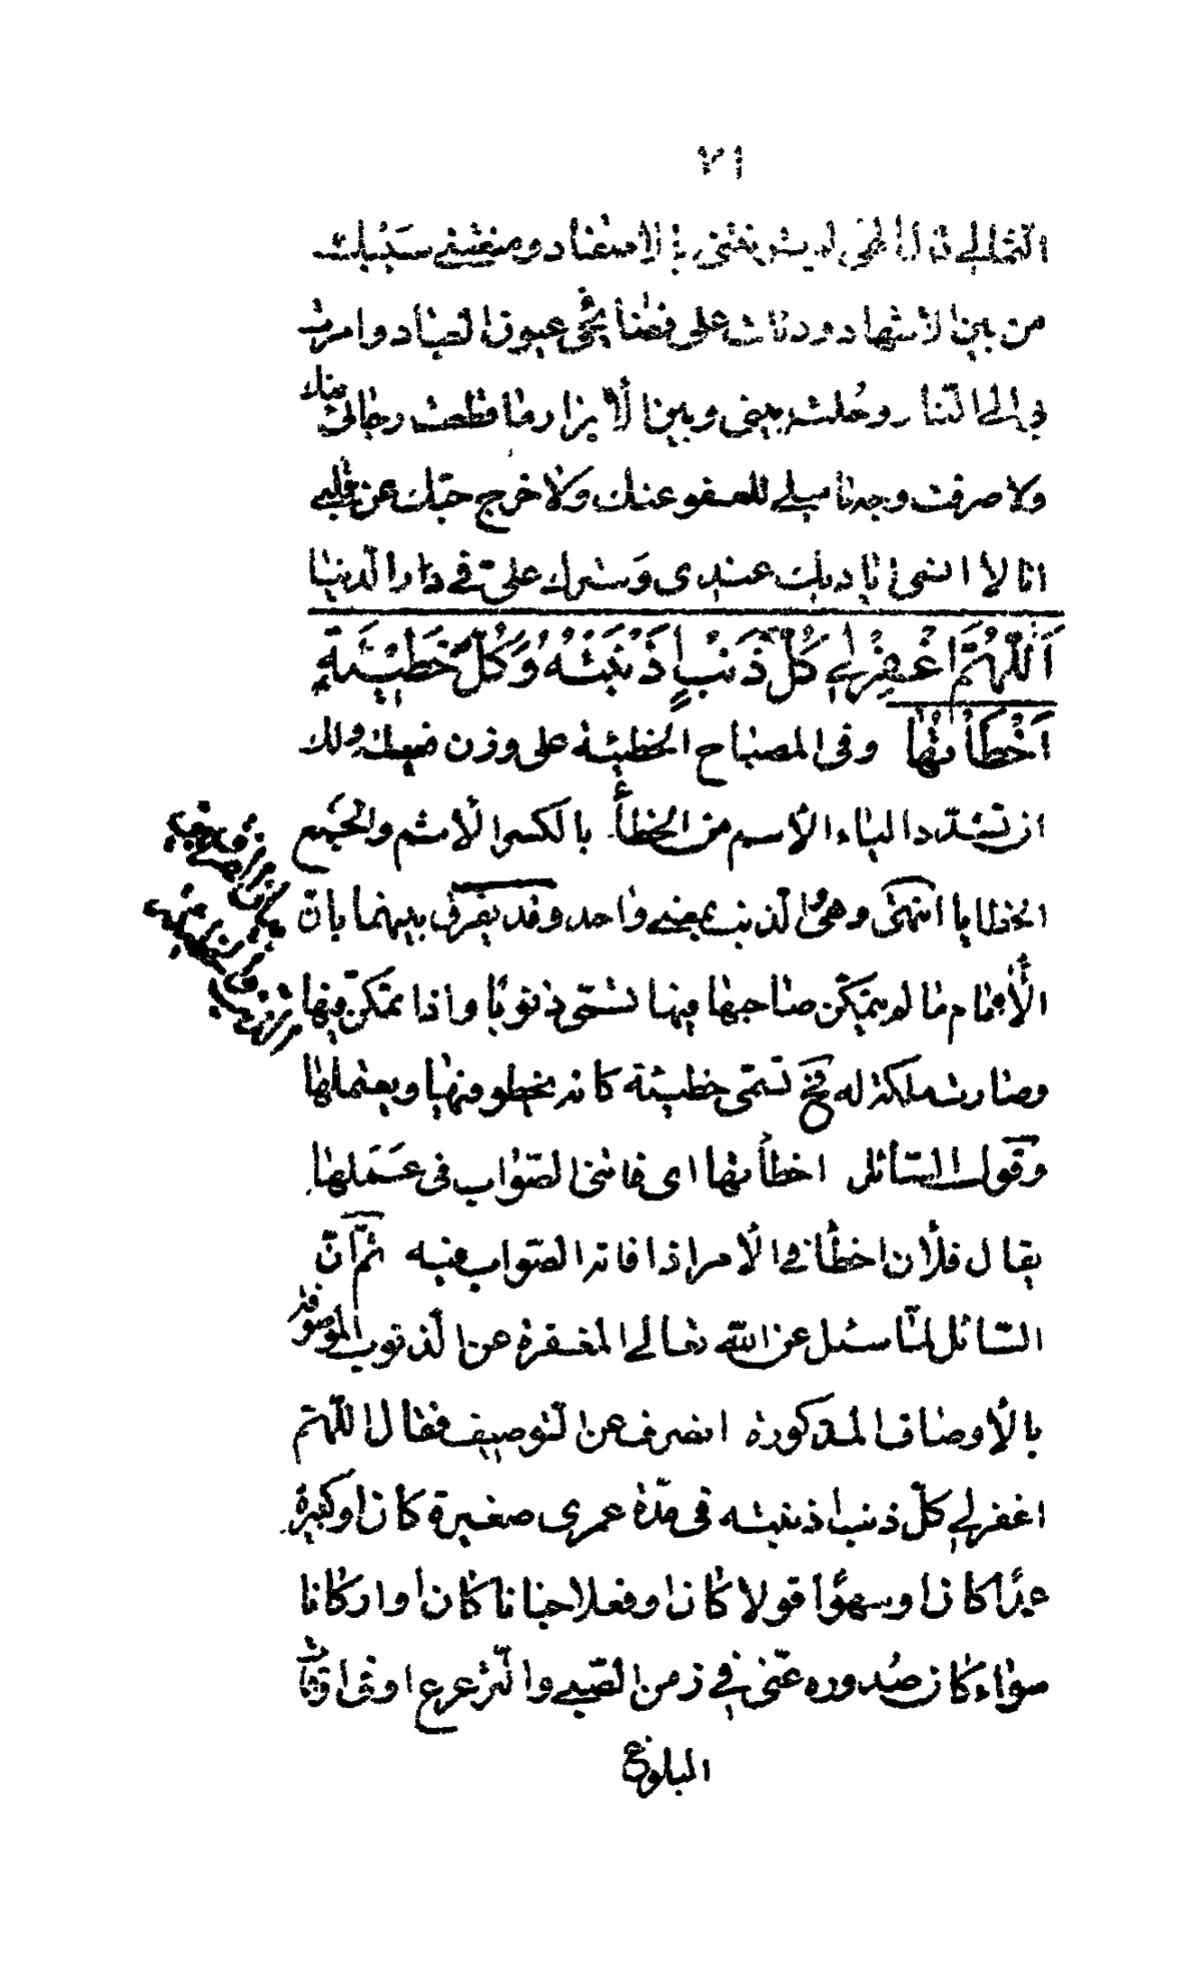 ٧١
الثمالي قال الهي لو قرنتني بالاصفاد ومنعتني سيبك
من بين الاشهاد ودللت على فضايحي عيون العباد وامرت
بي الى النار وحلت بيني وبين الأبرار ما قطعت رجائي منك
ولا صرفت وجه تأميلي للعفو عنك ولا خرج حبك عن قلبي
انا لا انسى اياديك عندي وسترك عليّ في دار الدنيا
اَللّهُمَّ اغْفِرْ لي كُلَّ ذَنْبٍ اَذْنَبْتُهُ وَكُلَّ خَطيئَةٍ
اَخْطَأْتُها وفي المصباح الخطيئة على وزن فعيلة ولك
ان تشدد الياء الأسم من الخطأ بالكسر الأثم والجمع
الخطايا انتهى وهي والذنب بمعنى واحد وقد يفرق بينهما بان
الأثام ما لم يتمكن صاحبها فيها تسمّى ذنوبا واذا تمكن فيها
وصارت ملكة له فح تسمّى خطيئة كانه يخطو فيها ويعملها
وقول السائل اخطأتها اى فاتنى الصّواب فى عملها
يقال فلان اخطأ في الأمر اذا فاته الصّواب فيه ثمّ انّ
السّائل لمّا سئل عن الله تعالى المغفرة عن الذنوب الموصوفة
بالأوصاف المذكورة انصرف عن التوصيف فقال اللّهمّ
اغفر لي كلّ ذنب اذنبته فى مدّة عمرى صغيرة كان او كبيرة
عمدًا كان او سهوًا قولا كان او فعلا جنانا كان او اركانا
سواء كان صدوره عنّى في زمن الصّبى والترعرع او فى اوقات
البلوغ